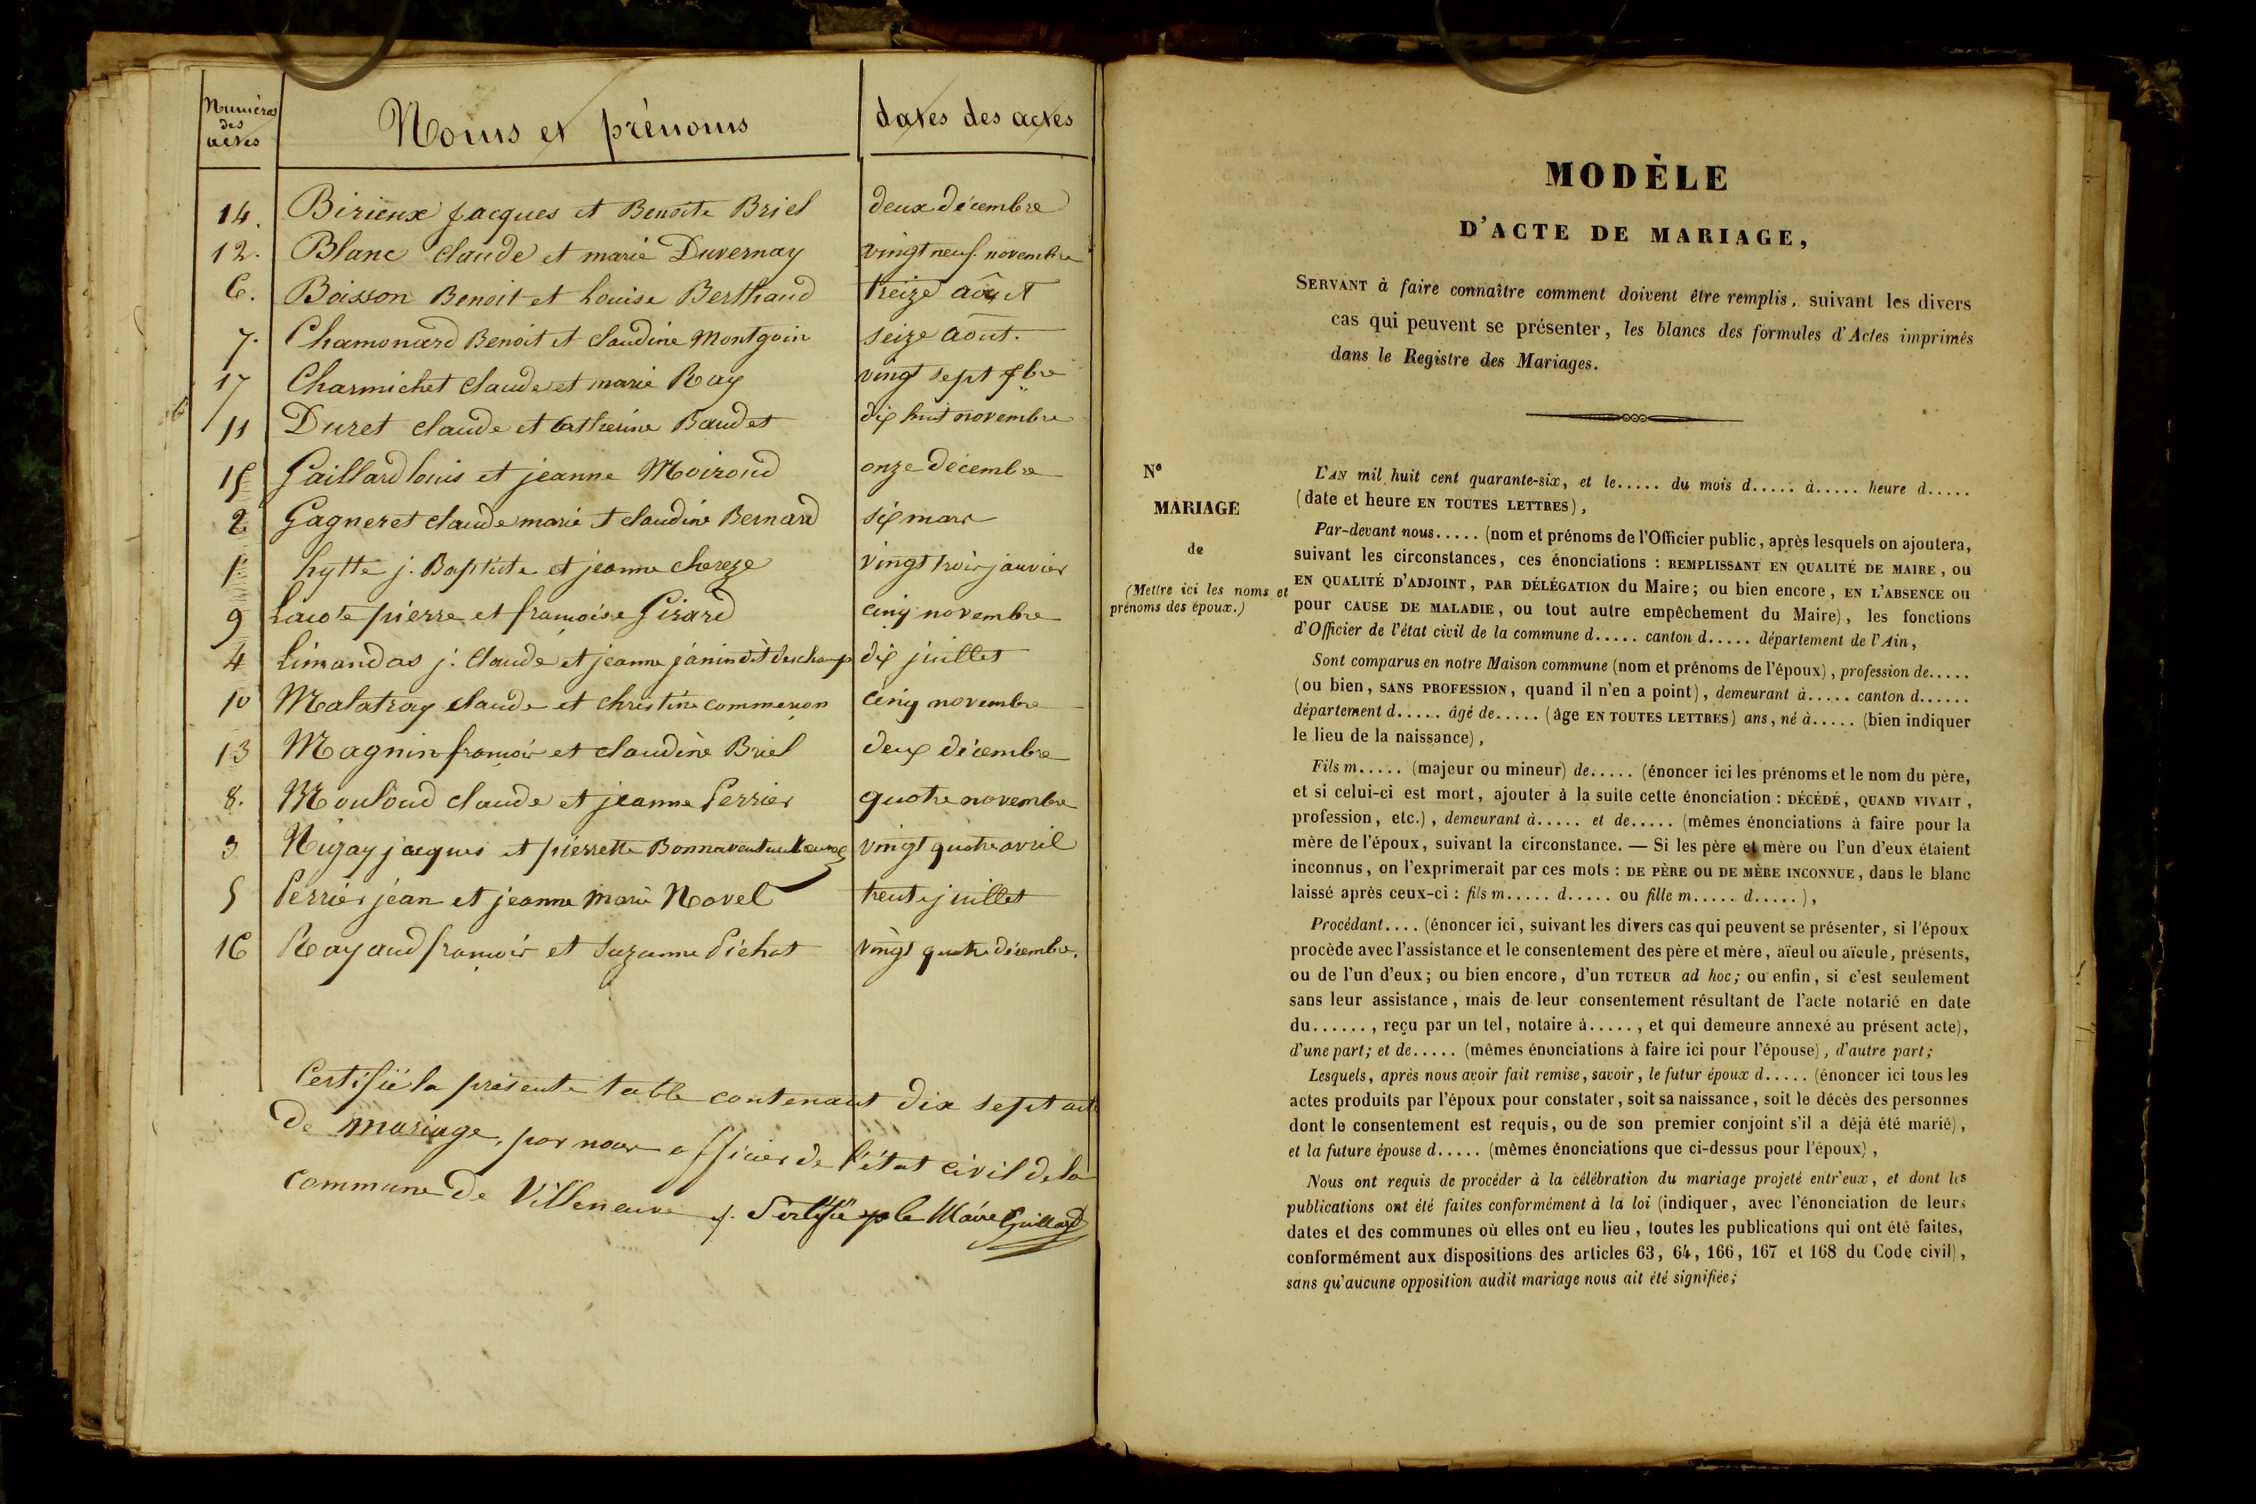 Numéros des actes
Noms et prénoms
dates des actes
14. Birieux jacques et Benoîte Briel deux décembre
12. Blanc claude et marie Duvernay vingt neuf novembre
6. Boisson Benoit et Louise Berthaud treize août
7. Chamonard Benoit et claudine Montgoin seize août.
17 Charmichet claude et marie Ray vingt sept
11 Duret claude et Catherine Baudet dix huit novembre
15 Gaillard louis et jeanne Moiroud onze décembre
2 Gagneret claude marie et claudine Bernard six mars
1 hytte j. Baptiste et jeanne chereze vingt trois janvier
9 Lacote pierre et françoise Girard cinq novembre
4 Limandas j. claude et jeanne janin dit deschamp dix juillet
10 Malatray claude et christine commerçon cinq novembre
13 Magnin françois et claudine Briel deux décembre
8. Mouloud claude et jeanne Perrier quatre novembre
3 Nigay jacques et pierrette vingt quatre avril
5 Perrier jean et jeanne marie Novel trente juillet
16 Rayaud françois et suzanne Pichat vingt quatre décembre.
Certifié la présente table contenant dix sept acte
de mariage, par nous officier de l'état civil de la
commune de Villeneuve le Maire Guillard
MODÈLE
D'ACTE DE MARIAGE,
SERVANT à faire connaître comment doivent être remplis, suivant les divers
cas qui peuvent se présenter, les blancs des formules d'Actes imprimés
dans le Registre des Mariages.
N°
MARIAGE
de
(Mettre ici les noms et
prénoms des époux.)
L'AN mil huit cent quarante-six, et le..... du mois d..... à..... heure d.....
(date et heure EN TOUTES LETTRES),
Par-devant nous..... (nom et prénoms de l'Officier public, après lesquels on ajoutera,
suivant les circonstances, ces énonciations : REMPLISSANT EN QUALITÉ DE MAIRE, ou
EN QUALITÉ D'ADJOINT, PAR DÉLÉGATION du Maire; ou bien encore, EN L'ABSENCE OU
pour CAUSE DE MALADIE, ou tout autre empêchement du Maire), les fonctions
d'Officier de l'état civil de la commune d..... canton d..... département de l'Ain,
Sont comparus en notre Maison commune (nom et prénoms de l'époux), profession de.....
(ou bien, SANS PROFESSION, quand il n'en a point), demeurant à..... canton d......
département d..... âgé de..... (âge EN TOUTES LETTRES) ans, né à..... (bien indiquer
le lieu de la naissance),
Fils m..... (majeur ou mineur) de..... (énoncer ici les prénoms et le nom du père,
et si celui-ci est mort, ajouter à la suite cette énonciation : DÉCÉDÉ, QUAND VIVAIT,
profession, etc.), demeurant à..... et de..... (mêmes énonciations à faire pour la
mère de l'époux, suivant la circonstance. — Si les père et mère ou l'un d'eux étaient
inconnus, on l'exprimerait par ces mots : DE PÈRE OU DE MÈRE INCONNUE, dans le blanc
laissé après ceux-ci : fils m..... d..... ou fille m..... d.....),
Procédant.... (énoncer ici, suivant les divers cas qui peuvent se présenter, si l'époux
procède avec l'assistance et le consentement des père et mère, aïeul ou aïeule, présents,
ou de l'un d'eux; ou bien encore, d'un TUTEUR ad hoc; ou enfin, si c'est seulement
sans leur assistance, mais de leur consentement résultant de l'acte notarié en date
du......, reçu par un tel, notaire à....., et qui demeure annexé au présent acte),
d'une part; et de..... (mêmes énonciations à faire ici pour l'épouse), d'autre part;
Lesquels, après nous avoir fait remise, savoir, le futur époux d..... (énoncer ici tous les
actes produits par l'époux pour constater, soit sa naissance, soit le décès des personnes
dont le consentement est requis, ou de son premier conjoint s'il a déjà été marié),
et la future épouse d..... (mêmes énonciations que ci-dessus pour l'époux),
Nous ont requis de procéder à la célébration du mariage projeté entr'eux, et dont les
publications ont été faites conformément à la loi (indiquer, avec l'énonciation de leurs
dates et des communes où elles ont eu lieu, toutes les publications qui ont été faites,
conformément aux dispositions des articles 63, 64, 166, 167 et 168 du Code civil),
sans qu'aucune opposition audit mariage nous ait été signifiée;